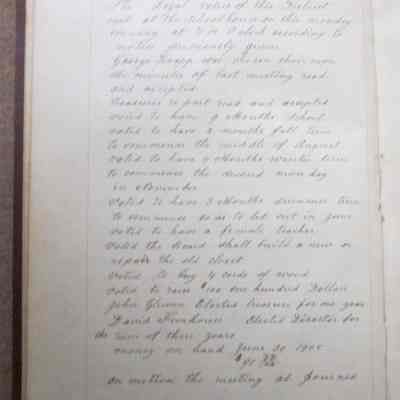 The legal voters of this District
met at the School house on this monday
evening at 7 o clock according to
notice previously given
George Knapp was chosen chair man
the minutes of last meeting read
and accepted
Treasurers report read and accepted
voted to have 9 Months School
voted to have 2 months fall term
to commence the middle of August
voted to have 4 Months winter term
to commence the second monday
in November
voted to have 3 Months summer term
to commence so as to let out in june
voted to have a female teacher
voted the board shall build a new or
repair the old closet
voted to buy 4 cords of wood
voted to raise $100 one hundred Dollars
John Elected treasurer for one year
David Elected Director for
the term of three years
money on hand June 30
$91
on motion the meeting at journed